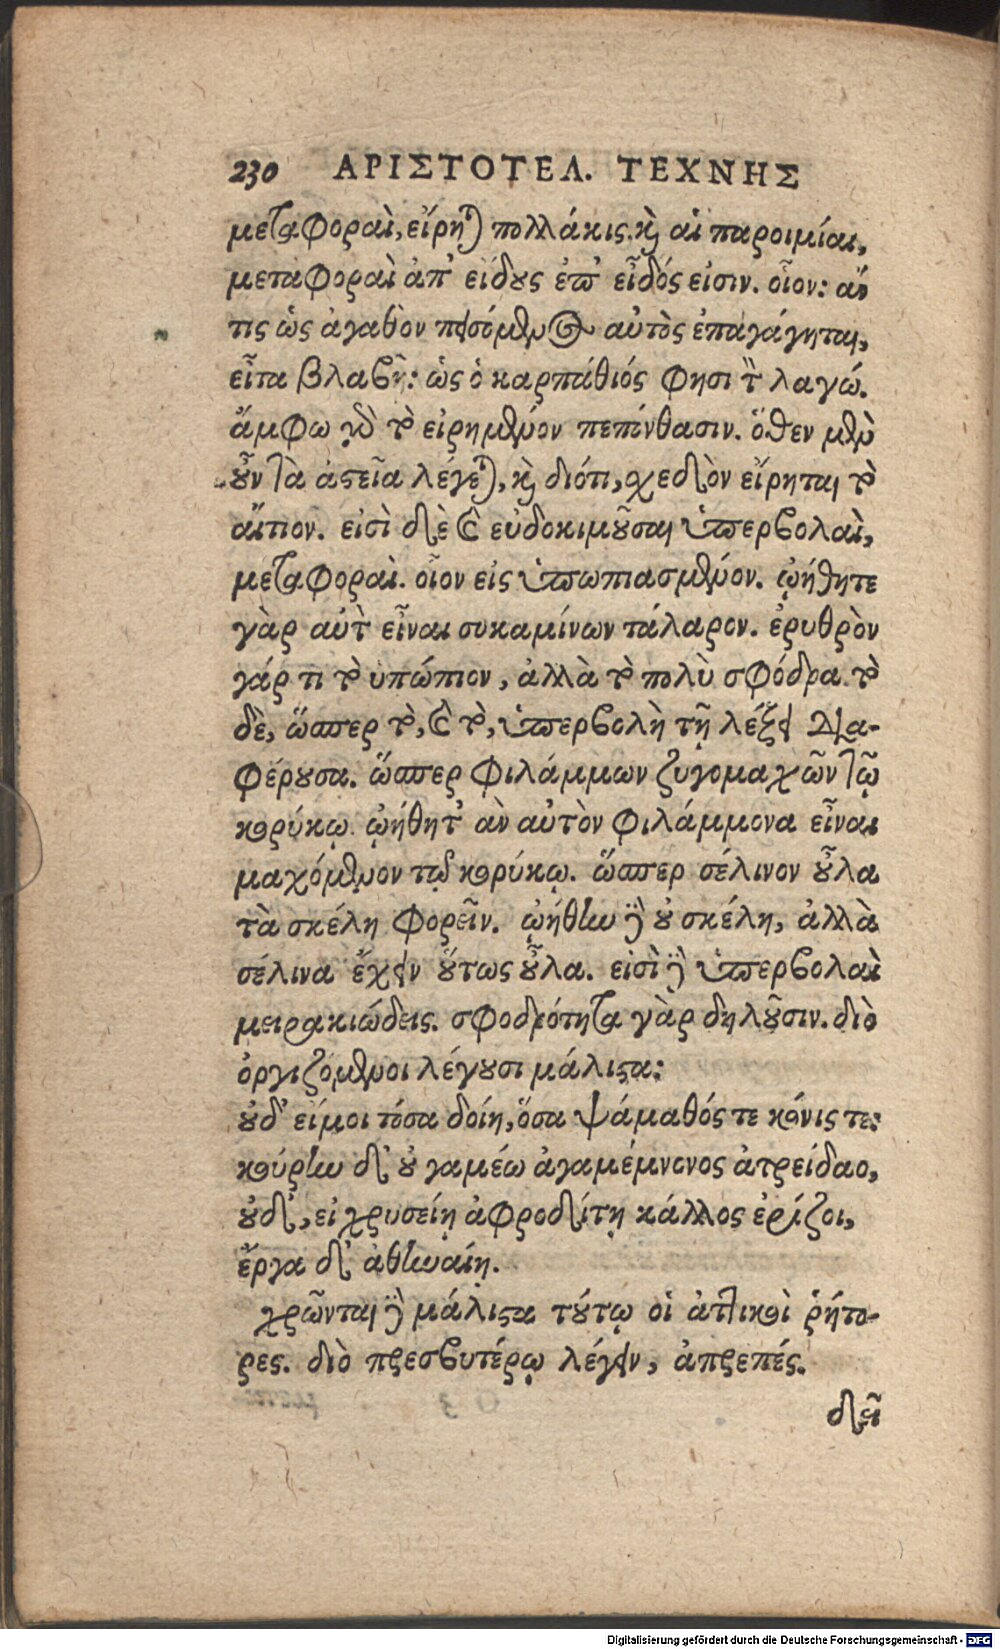 230 ΑΡΙΣΤΟΤΕΛ. ΤΕΧΝΗΣ
μεταφοραὶ, εἴρηται πολλάκις. καὶ αἱ παροιμίαι,
μεταφοραὶ ἀπ' εἴδους ἐπ' εἶδός εἰσιν. οἷον: ἄν
τις ὡς ἀγαθὸν πεισόμενος αὐτὸς ἐπαγάγηται,
εἶτα βλαβῇ: ὡς ὁ καρπάθιός φησι τὸν λαγώ.
ἄμφω γὰρ τὸ εἰρημένον πεπόνθασιν. ὅθεν μὲν
οὖν τὰ ἀστεῖα λέγεται, καὶ διότι, σχεδὸν εἴρηται τὸ
αἴτιον. εἰσὶ δὲ καὶ εὐδοκιμοῦσαι ὑπερβολαὶ,
μεταφοραὶ. οἷον εἰς ὑπωπιασμένον. ᾠήθητε
γὰρ αὐτὸν εἶναι συκαμίνων τάλαρον. ἐρυθρὸν
γάρ τι τὸ ὑπώπιον, ἀλλὰ τὸ πολὺ σφόδρα. τὸ
δὲ, ὥσπερ τὸ, καὶ τὸ, ὑπερβολὴ τῇ λέξει δια-
φέρουσα. ὥσπερ φιλάμμων ζυγομαχῶν τῷ
κωρύκῳ. ᾠήθητ' ἂν αὐτὸν φιλάμμονα εἶναι
μαχόμενον τῷ κωρύκῳ. ὥσπερ σέλινον οὖλα
τὰ σκέλη φορεῖν. ᾠήθην δὲ οὐ σκέλη, ἀλλὰ
σέλινα ἔχειν οὕτως οὖλα. εἰσὶ δὲ ὑπερβολαὶ
μειρακιώδεις. σφοδρότητα γὰρ δηλοῦσιν. διὸ
ὀργιζόμενοι λέγουσι μάλιστα:
οὐδ' εἴ μοι τόσα δοίη, ὅσα ψάμαθός τε κόνις τε:
κούρην δ' οὐ γαμέω ἀγαμέμνονος ἀτρείδαο,
οὐδ', εἰ χρυσείῃ ἀφροδίτῃ κάλλος ἐρίζοι,
ἔργα δ' ἀθηναίῃ.
χρῶνται δὲ μάλιστα τούτῳ οἱ ἀττικοὶ ῥήτο-
ρες. διὸ πρεσβυτέρῳ λέγειν, ἀπρεπές.
δεῖ
Digitalisierung gefördert durch die Deutsche Forschungsgemeinschaft - DFG